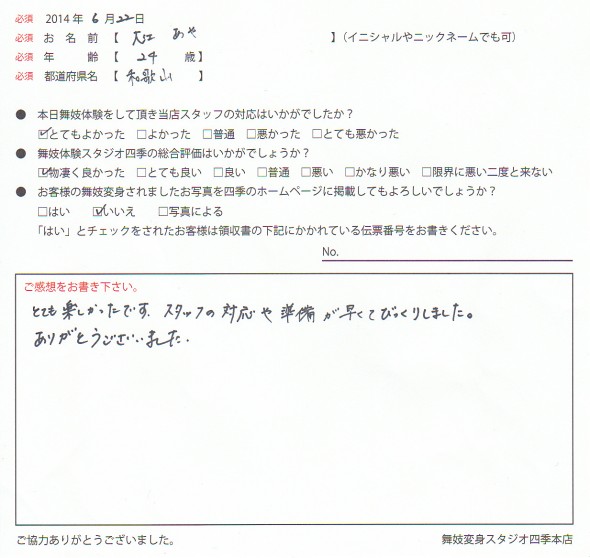 必須 2014 年 6 月 22 日
必須 お 名 前 【 大江 あや 】(イニシャルやニックネームでも可)
必須 年 齢 【 24 歳】
必須 都道府県名 【 和歌山 】
● 本日舞妓体験をして頂き当店スタッフの対応はいかがでしたか？
☑とてもよかった □よかった □普通 □悪かった □とても悪かった
● 舞妓体験スタジオ四季の総合評価はいかがでしょうか？
☑物凄く良かった □とても良い □良い □普通 □悪い □かなり悪い □限界に悪い二度と来ない
● お客様の舞妓変身されましたお写真を四季のホームページに掲載してもよろしいでしょうか？
□はい ☑いいえ □写真による
「はい」とチェックをされたお客様は領収書の下記にかかれている伝票番号をお書きください。
No.
ご感想をお書き下さい。
とても楽しかったです。スタッフの対応や準備が早くてびっくりしました。
ありがとうございました.
ご協力ありがとうございました。 舞妓変身スタジオ四季本店